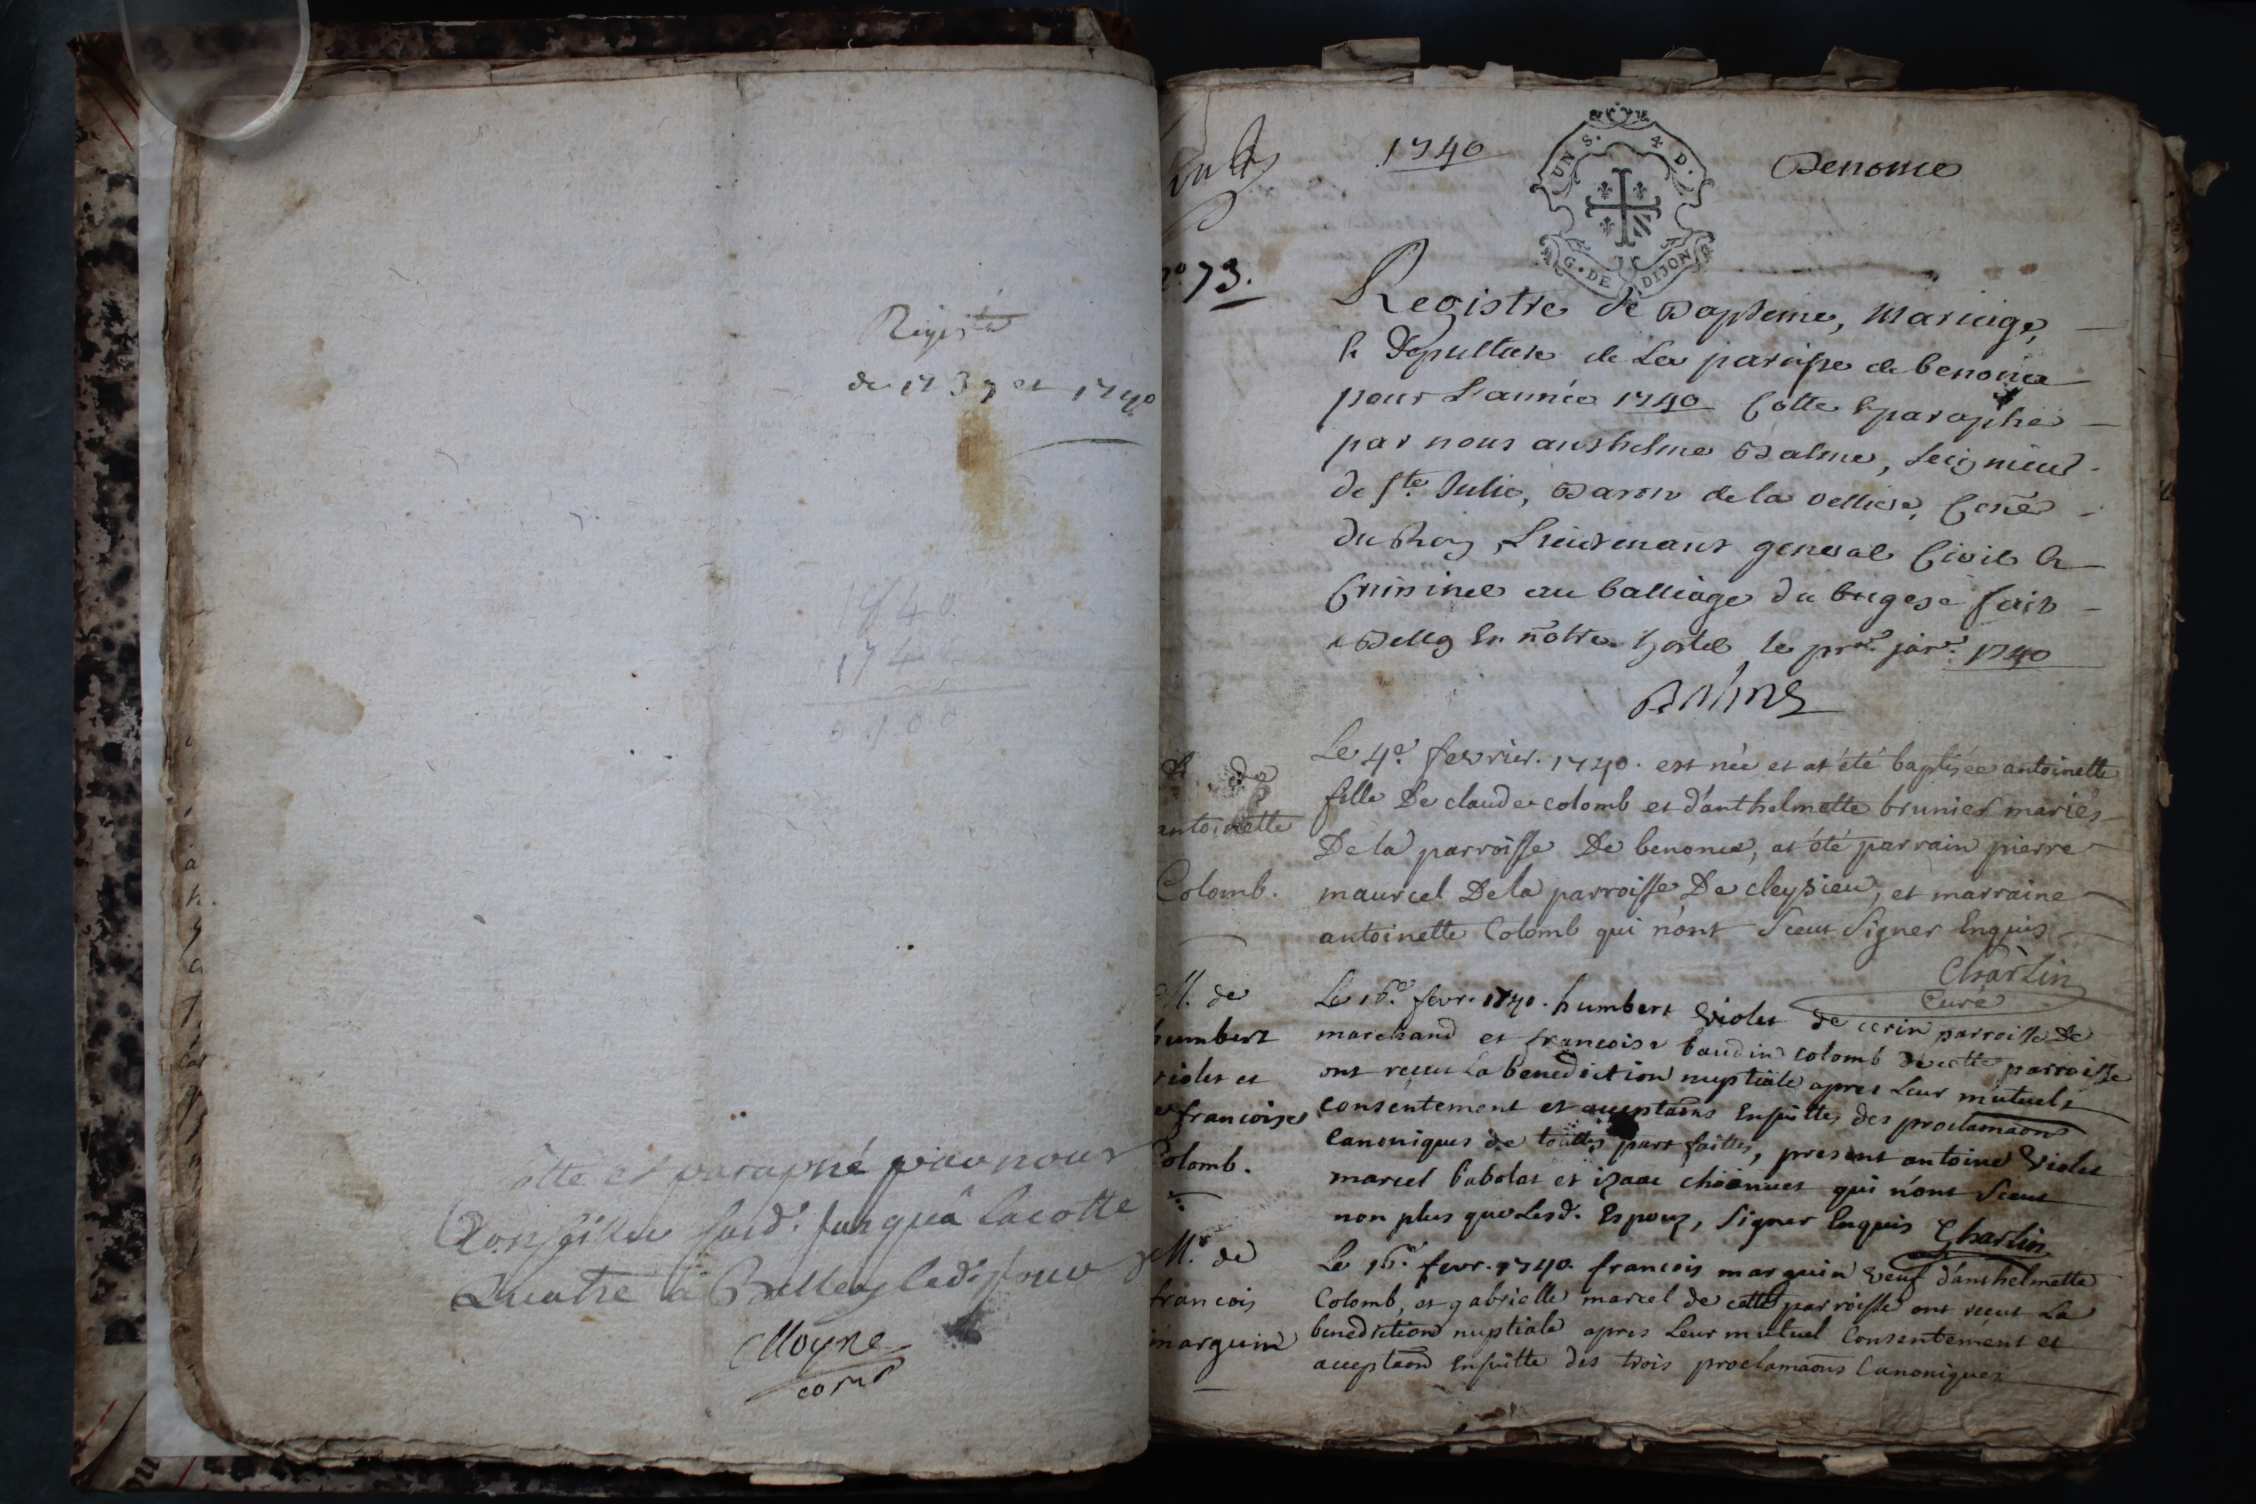 Registre
de 1739 et 1740
1840
174
0100
Cotte et paraphé par nous
Conseiller susd. jusqu'à la cotte
Quatre à Belley led. jour
Moyne
1740
Benonce
UN S. 4 D.
G. DE DIJON
n.º 73.
Registre de Baptême, Mariage,
& Sepulture de La paroisse de benonce
pour L'année 1740 Cotté & paraphé
par nous anthelme Balme, Seigneur
de Ste. Julie, Baron de la velliere, Coner
du Roy, Lieutenant general Civil &
Criminel au balliage du bugey fait
a Belley En nôtre hostel le pr. janr. 1740
Balme
B. de
antoinette
Colomb.
Le 4e. fevrier. 1740. est née et at été baptisée antoinette
fille De claude colomb et d'anthelmette brunier mariés
De la parroisse De benonce, at été parrain pierre
maurcel De la parroisse De cleysieu, et marraine
antoinette Colomb qui n'ont Sceut Signer Enquis
Charlin
Curé
M. de
humbert
violet et
francoise
Colomb.
Le 16e. fevr. 1740. humbert violet de cerin parroisse De
marchand et francoise baudin colomb De cette parroisse
ont reçeu La benediction nuptiale apres Leur mutuels
consentement et acceptaons Ensuitte des proclamaons
Canoniques de touttes part faittes, present antoine violet
marcel babolat et izaac chaanuet qui n'ont Sceut
non plus que Lesd. Espoux, Signer Enquis Charlin
Mr. de
francois
marguin
Le 16e. fevr. 1740. francois marguin veuf d'anthelmette
Colomb, et gabrielle marcel de cette parroisse ont reçeut La
benediction nuptiale apres Leur mutuel Consentement et
acceptaon Ensuitte des trois proclamaons Canoniques